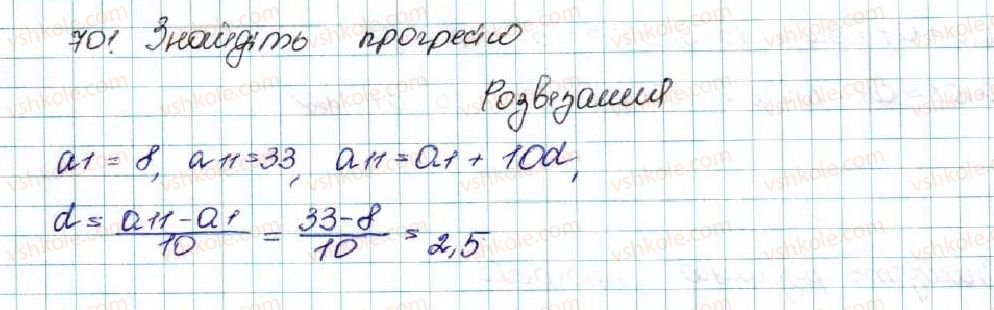 701 Знайдіть прогресію
Розвезання
a1 = 8, a11 = 33, a11 = a1 + 10d,
d = \frac{a11 - a1}{10} = \frac{33 - 8}{10} = 2,5